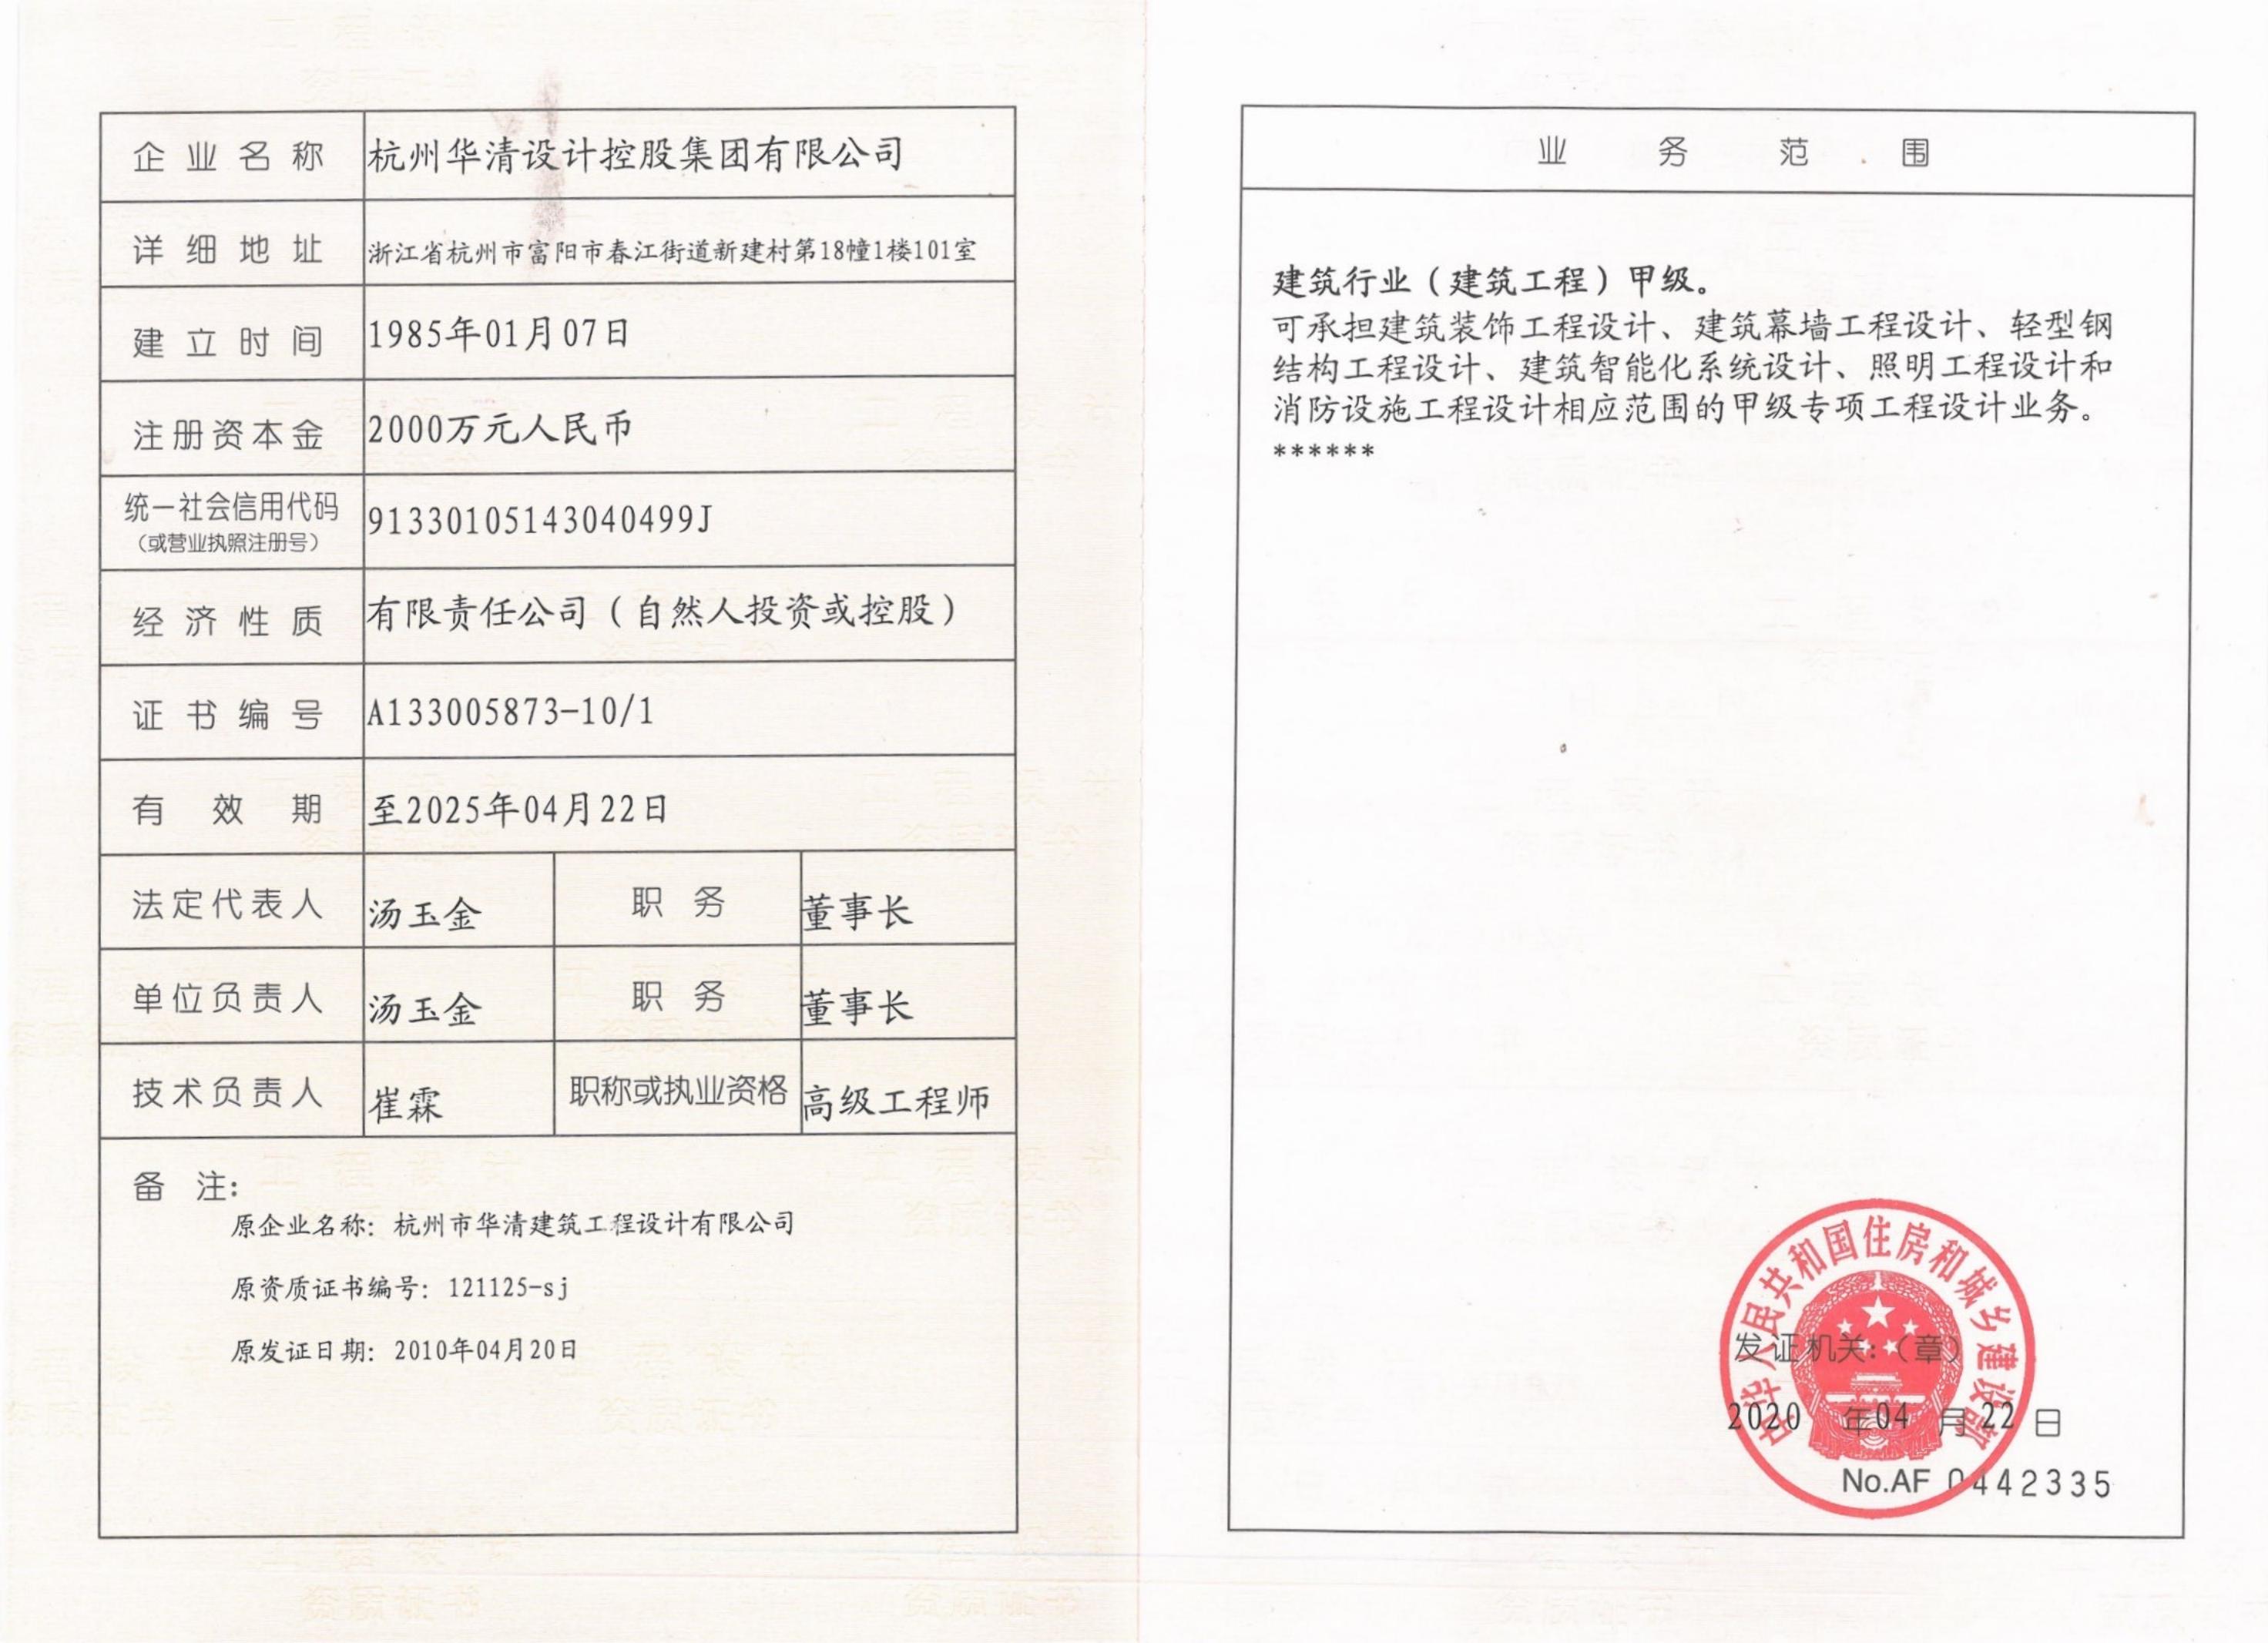 企业名称 杭州华清设计控股集团有限公司
详细地址 浙江省杭州市富阳市春江街道新建村第18幢1楼101室
建立时间 1985年01月07日
注册资本金 2000万元人民币
统一社会信用代码
（或营业执照注册号） 91330105143040499J
经济性质 有限责任公司（自然人投资或控股）
证书编号 A133005873-10/1
有效期 至2025年04月22日
法定代表人 汤玉金 职务 董事长
单位负责人 汤玉金 职务 董事长
技术负责人 崔霖 职称或执业资格 高级工程师
备注：
原企业名称：杭州市华清建筑工程设计有限公司
原资质证书编号：121125-sj
原发证日期：2010年04月20日
业务范围
建筑行业（建筑工程）甲级。
可承担建筑装饰工程设计、建筑幕墙工程设计、轻型钢
结构工程设计、建筑智能化系统设计、照明工程设计和
消防设施工程设计相应范围的甲级专项工程设计业务。
******
中华人民共和国住房和城乡建设部
发证机关：（章）
2020年04月22日
No.AF 0442335